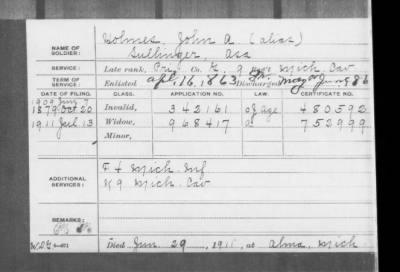 NAME OF SOLDIER: Holmes, John A (alias)
Sullinger, Asa
SERVICE: Late rank, Pvt Co. K, 9 Reg't Mich Cav
TERM OF SERVICE: Enlisted Apl 16, 1863 Discharged 186
DATE OF FILING. CLASS. APPLICATION NO. LAW. CERTIFICATE NO.
1909 Jun 7
1879 Oct 20 Invalid, 342161 of age 480592
1911 Jul 13 Widow, 968417 752999
Minor,
ADDITIONAL SERVICES: F 4 Mich Inf
K 9 Mich Cav
REMARKS:
Died Jun 29, 1911, at Alma, Mich